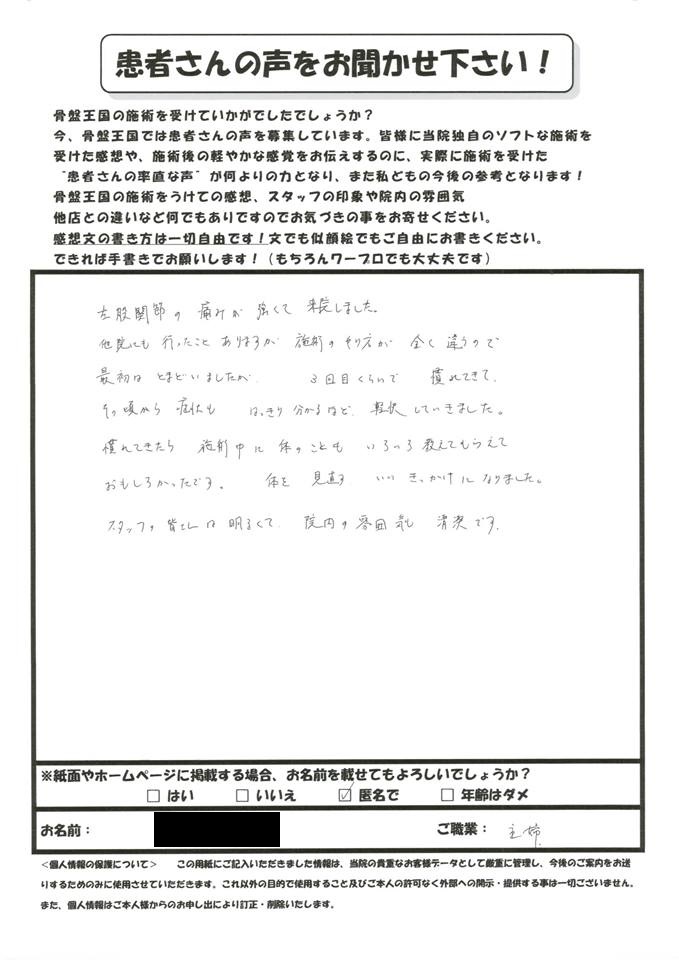 患者さんの声をお聞かせ下さい！
骨盤王国の施術を受けていかがでしたでしょうか？
今、骨盤王国では患者さんの声を募集しています。皆様に当院独自のソフトな施術を
受けた感想や、施術後の軽やかな感覚をお伝えするのに、実際に施術を受けた
“患者さんの率直な声”が何よりの力となり、また私どもの今後の参考となります！
骨盤王国の施術をうけての感想、スタッフの印象や院内の雰囲気
他店との違いなど何でもありですのでお気づきの事をお寄せください。
感想文の書き方は一切自由です！文でも似顔絵でもご自由にお書きください。
できれば手書きでお願いします！（もちろんワープロでも大丈夫です）
左股関節の痛みが強くて来院しました。
他院にも行ったことありますが施術のやり方が全く違うので
最初はとまどいましたが、3回目くらいで慣れてきて、
その頃から症状もはっきり分かるほど軽快していきました。
慣れてきたら施術中に体のこともいろいろ教えてもらえて
おもしろかったです。体を見直すいいきっかけになりました。
スタッフの皆さんは明るくて、院内の雰囲気も清潔です。
※紙面やホームページに掲載する場合、お名前を載せてもよろしいでしょうか？
□ はい □ いいえ ☑ 匿名で □ 年齢はダメ
お名前： ご職業： 主婦
＜個人情報の保護について＞ この用紙にご記入いただきました情報は、当院の貴重なお客様データとして厳重に管理し、今後のご案内をお送
りするためのみに使用させていただきます。これ以外の目的で使用すること及びご本人の許可なく外部への開示・提供する事は一切ございません。
また、個人情報はご本人様からのお申し出により訂正・削除いたします。